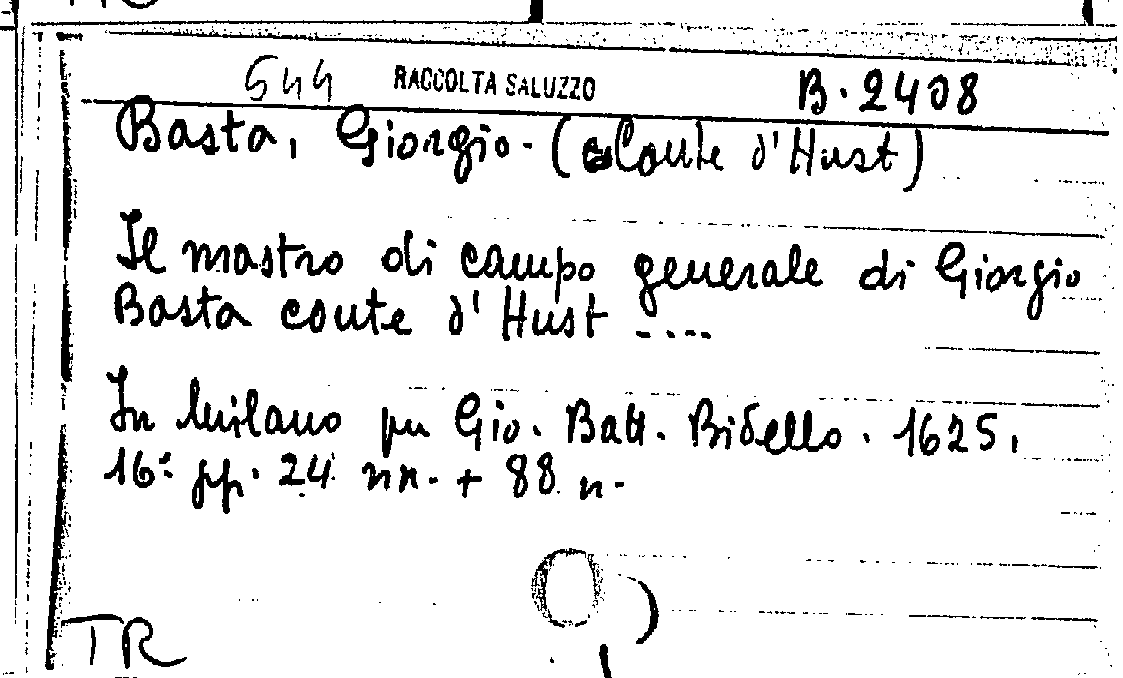 544 RACCOLTA SALUZZO B. 2408
Basta, Giorgio. (Conte d'Hust)
Il mastro di campo generale di Giorgio
Basta conte d'Hust ....
In Milano per Gio. Batt. Bidello. 1625.
16° pp. 24 nn. + 88 n.
TR